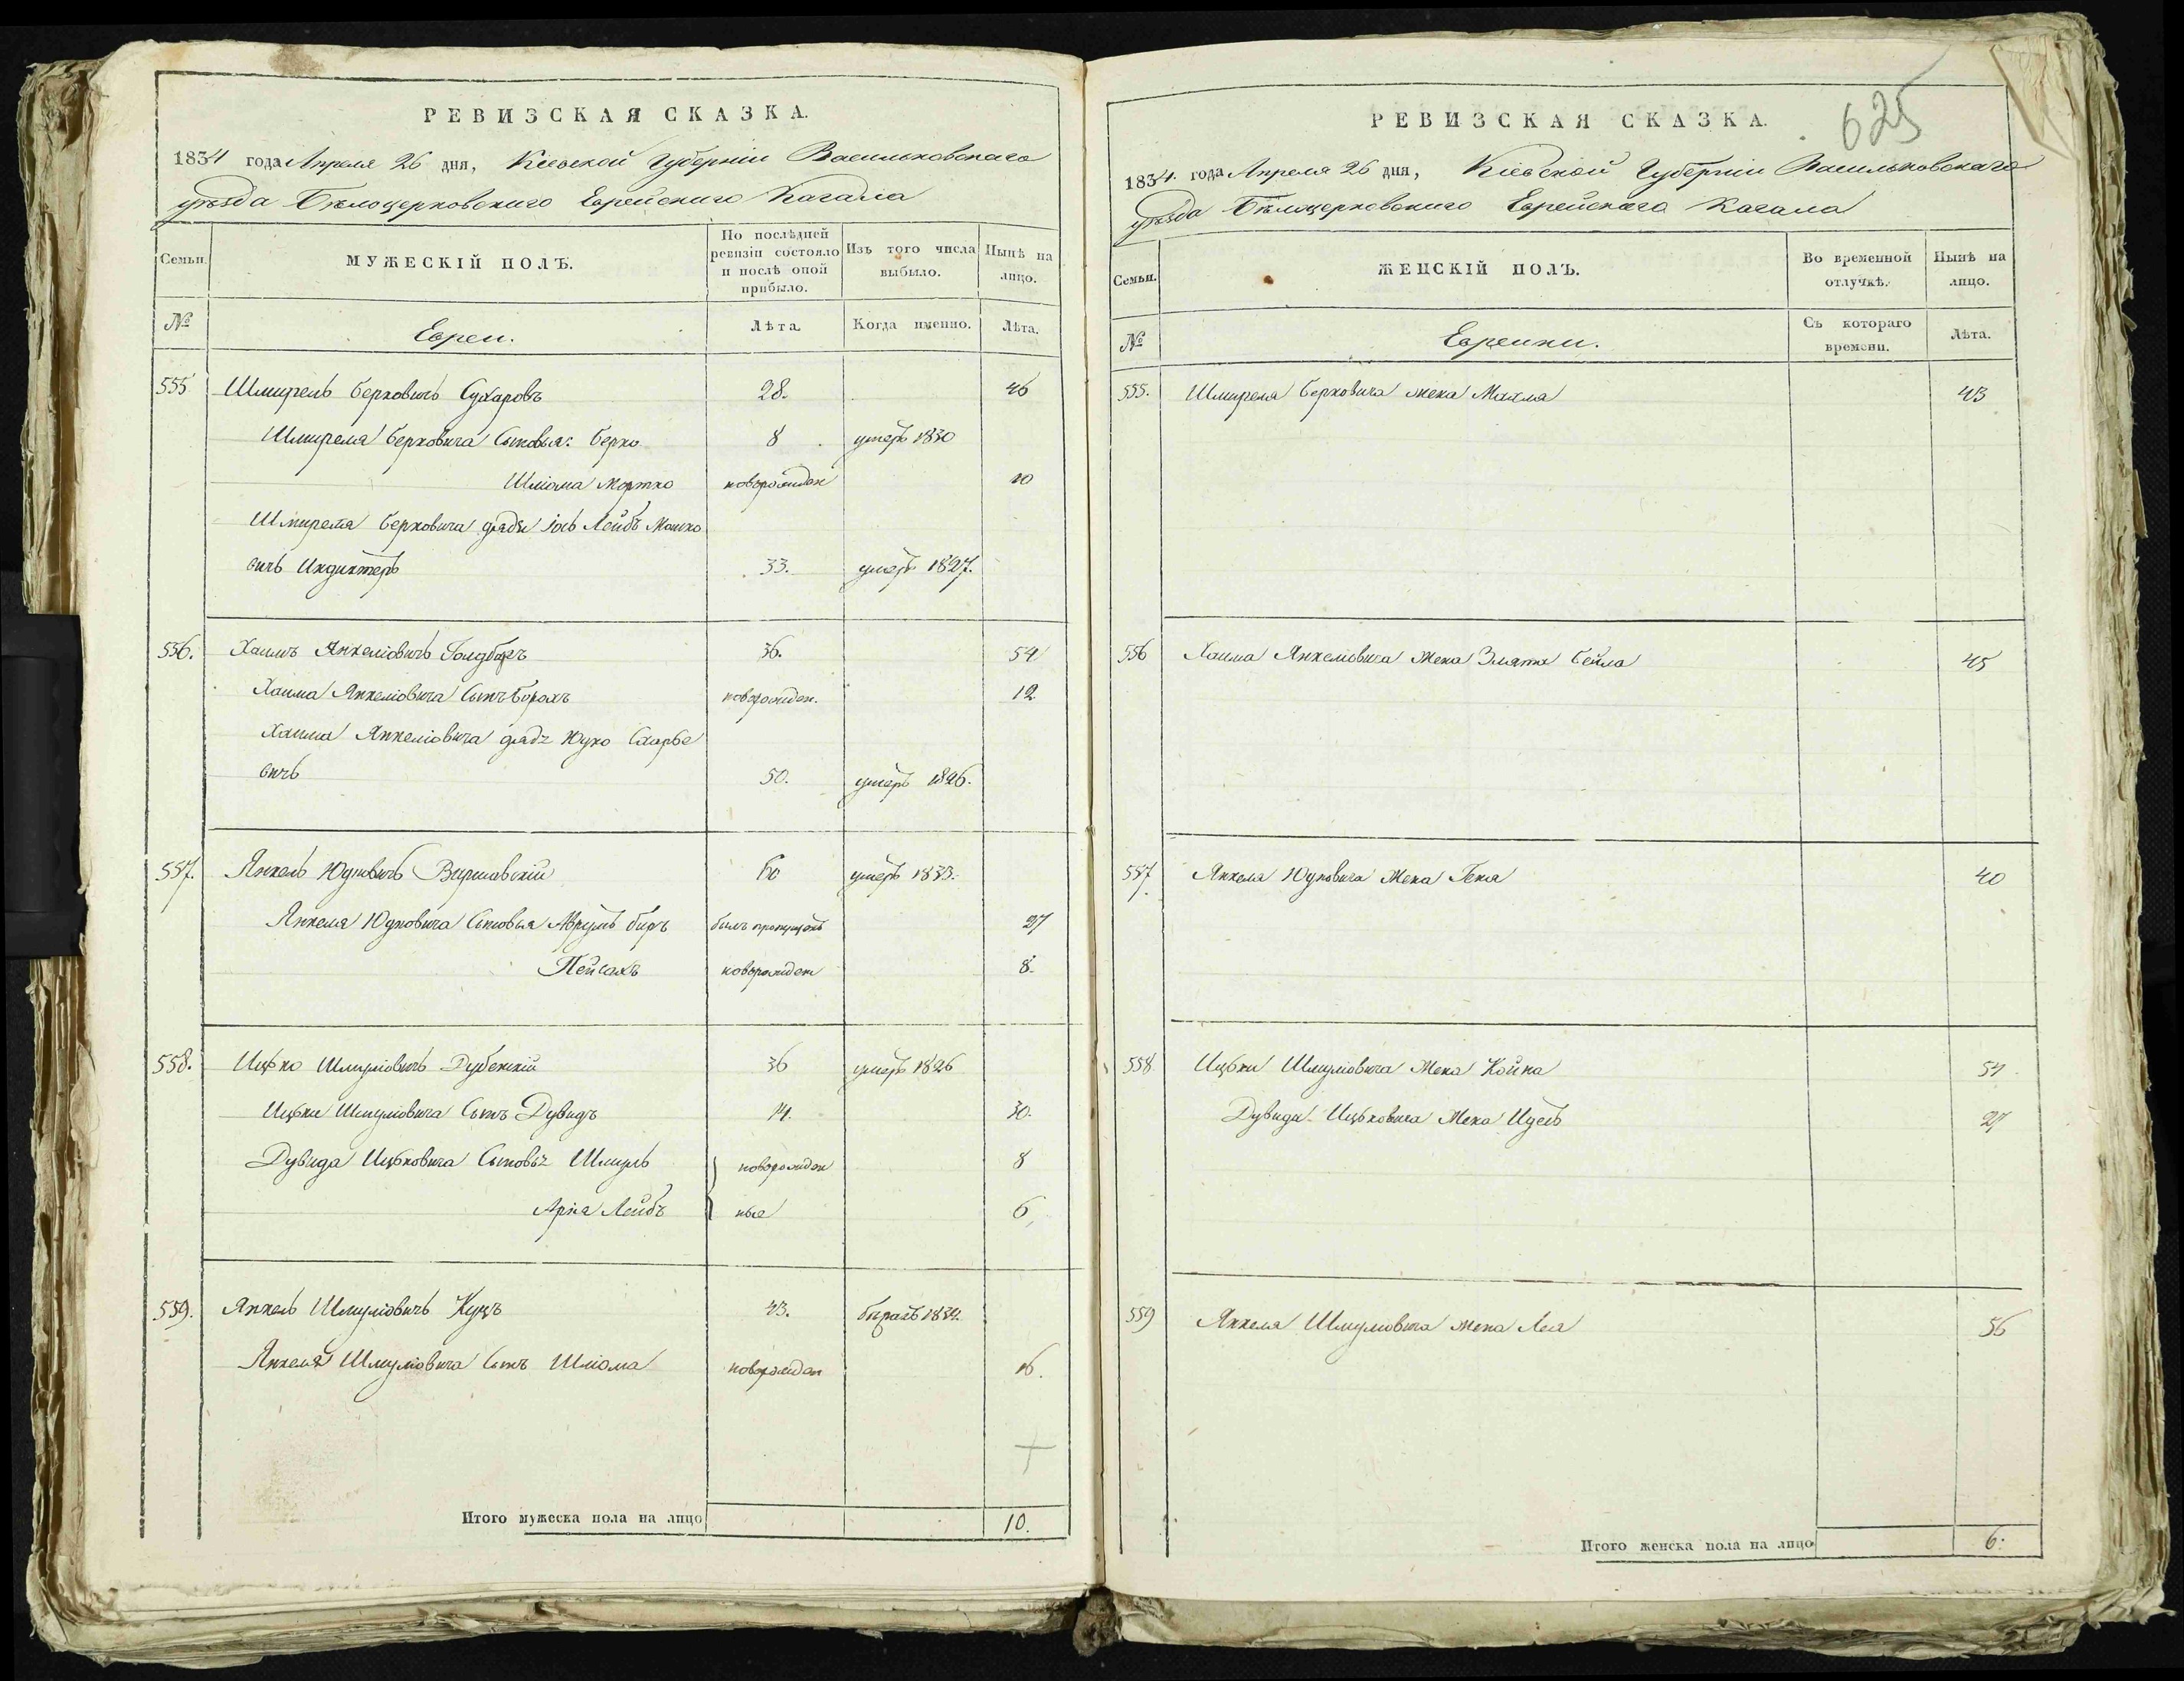 РЕВИЗСКАЯ СКАЗКА.
1834 года Апреля 26 дня, Кіевской Губерніи Васильковскаго
уѣзда Бѣлоцерковскаго Еврейскаго Кагала
Семьи.
МУЖЕСКІЙ ПОЛЪ.
По послѣдней ревизіи состояло и послѣ оной прибыло.
Изъ того числа выбыло.
Нынѣ на лицо.
№
Евреи.
Лѣта.
Когда именно.
Лѣта.
555 Шмирель Берковичъ Сухаровъ 28. 46
Шмиреля Берковича Сыновья: Берко 8 умеръ 1830
Шліома Мортко новорожден 10
Шмиреля Берковича дядя Іось Лейбъ Мошко
вичъ 33. умеръ 1827.
556. Хаимъ Янкеліовичъ 36. 54
Хаима Янкеліовича Сынъ Борохъ новорожден. 12
Хаима Янкеліовича дядя Юдко
вичъ 50. умеръ 1826.
557. Янкель Юдковичъ Варшавскій 60 умеръ 1833.
Янкеля Юдковича Сыновья Аврумъ Беръ былъ пропущенъ 27
Пейсахъ новорожден 8.
558. Ицко Шмуліовичъ Дубенскій 36 умеръ 1826
Ицьки Шмуліовича Сынъ Дувидъ 14. 30.
Дувида Ицьковича Сыновья Шмуль новорожден 8
Арія Лейбъ ные 6
559. Янкель Шмуліовичъ Куцъ 43.
Янкеля Шмуліовича Сынъ Шліома новорожден 16.
Итого мужеска пола на лицо 10.
625
РЕВИЗСКАЯ СКАЗКА.
1834 года Апреля 26 дня, Кіевской Губерніи Васильковскаго
уѣзда Бѣлоцерковскаго Еврейскаго Кагала
Семьи.
ЖЕНСКІЙ ПОЛЪ.
Во временной отлучкѣ.
Нынѣ на лицо.
№
Еврейки.
Съ котораго времени.
Лѣта.
555. Шмиреля Берковича жена Махля 43
556 Хаима Янкеліовича жена Злата Бейла 45
557. Янкеля Юдковича жена Геня 40
558 Ицьки Шмуліовича жена Хойна 54
Дувида Ицьковича жена Идесь 27
559 Янкеля Шмуліовича жена Лея 56
Итого женска пола на лицо 6.